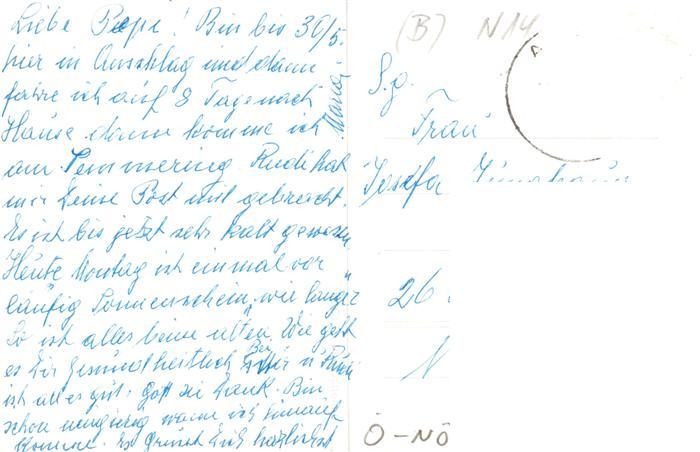 Liebe Pepi! Bin bis 30/5.
hier in Ausschlag und dann
fahre ich auf 8 Tage nach
Hause dann komme ich
am Semmering Rudi hat
mir Deine Post mit gebracht.
Es ist bis jetzt sehr kalt gewesen
Heute Montag ist einmal vor
läufig Sonnenschein, wie lange?
So ist alles beim alten. Wie geht
es Dir gesundheitlich Bei mir u Rudi
ist alles gut, Gott sei Dank. Bin
schon neugierig wann ich hinauf
komme. Es grüsst Dich herzlichst
Maria
(B) N14
S.g.
Frau
Josefa
26.
N
Ö-NÖ